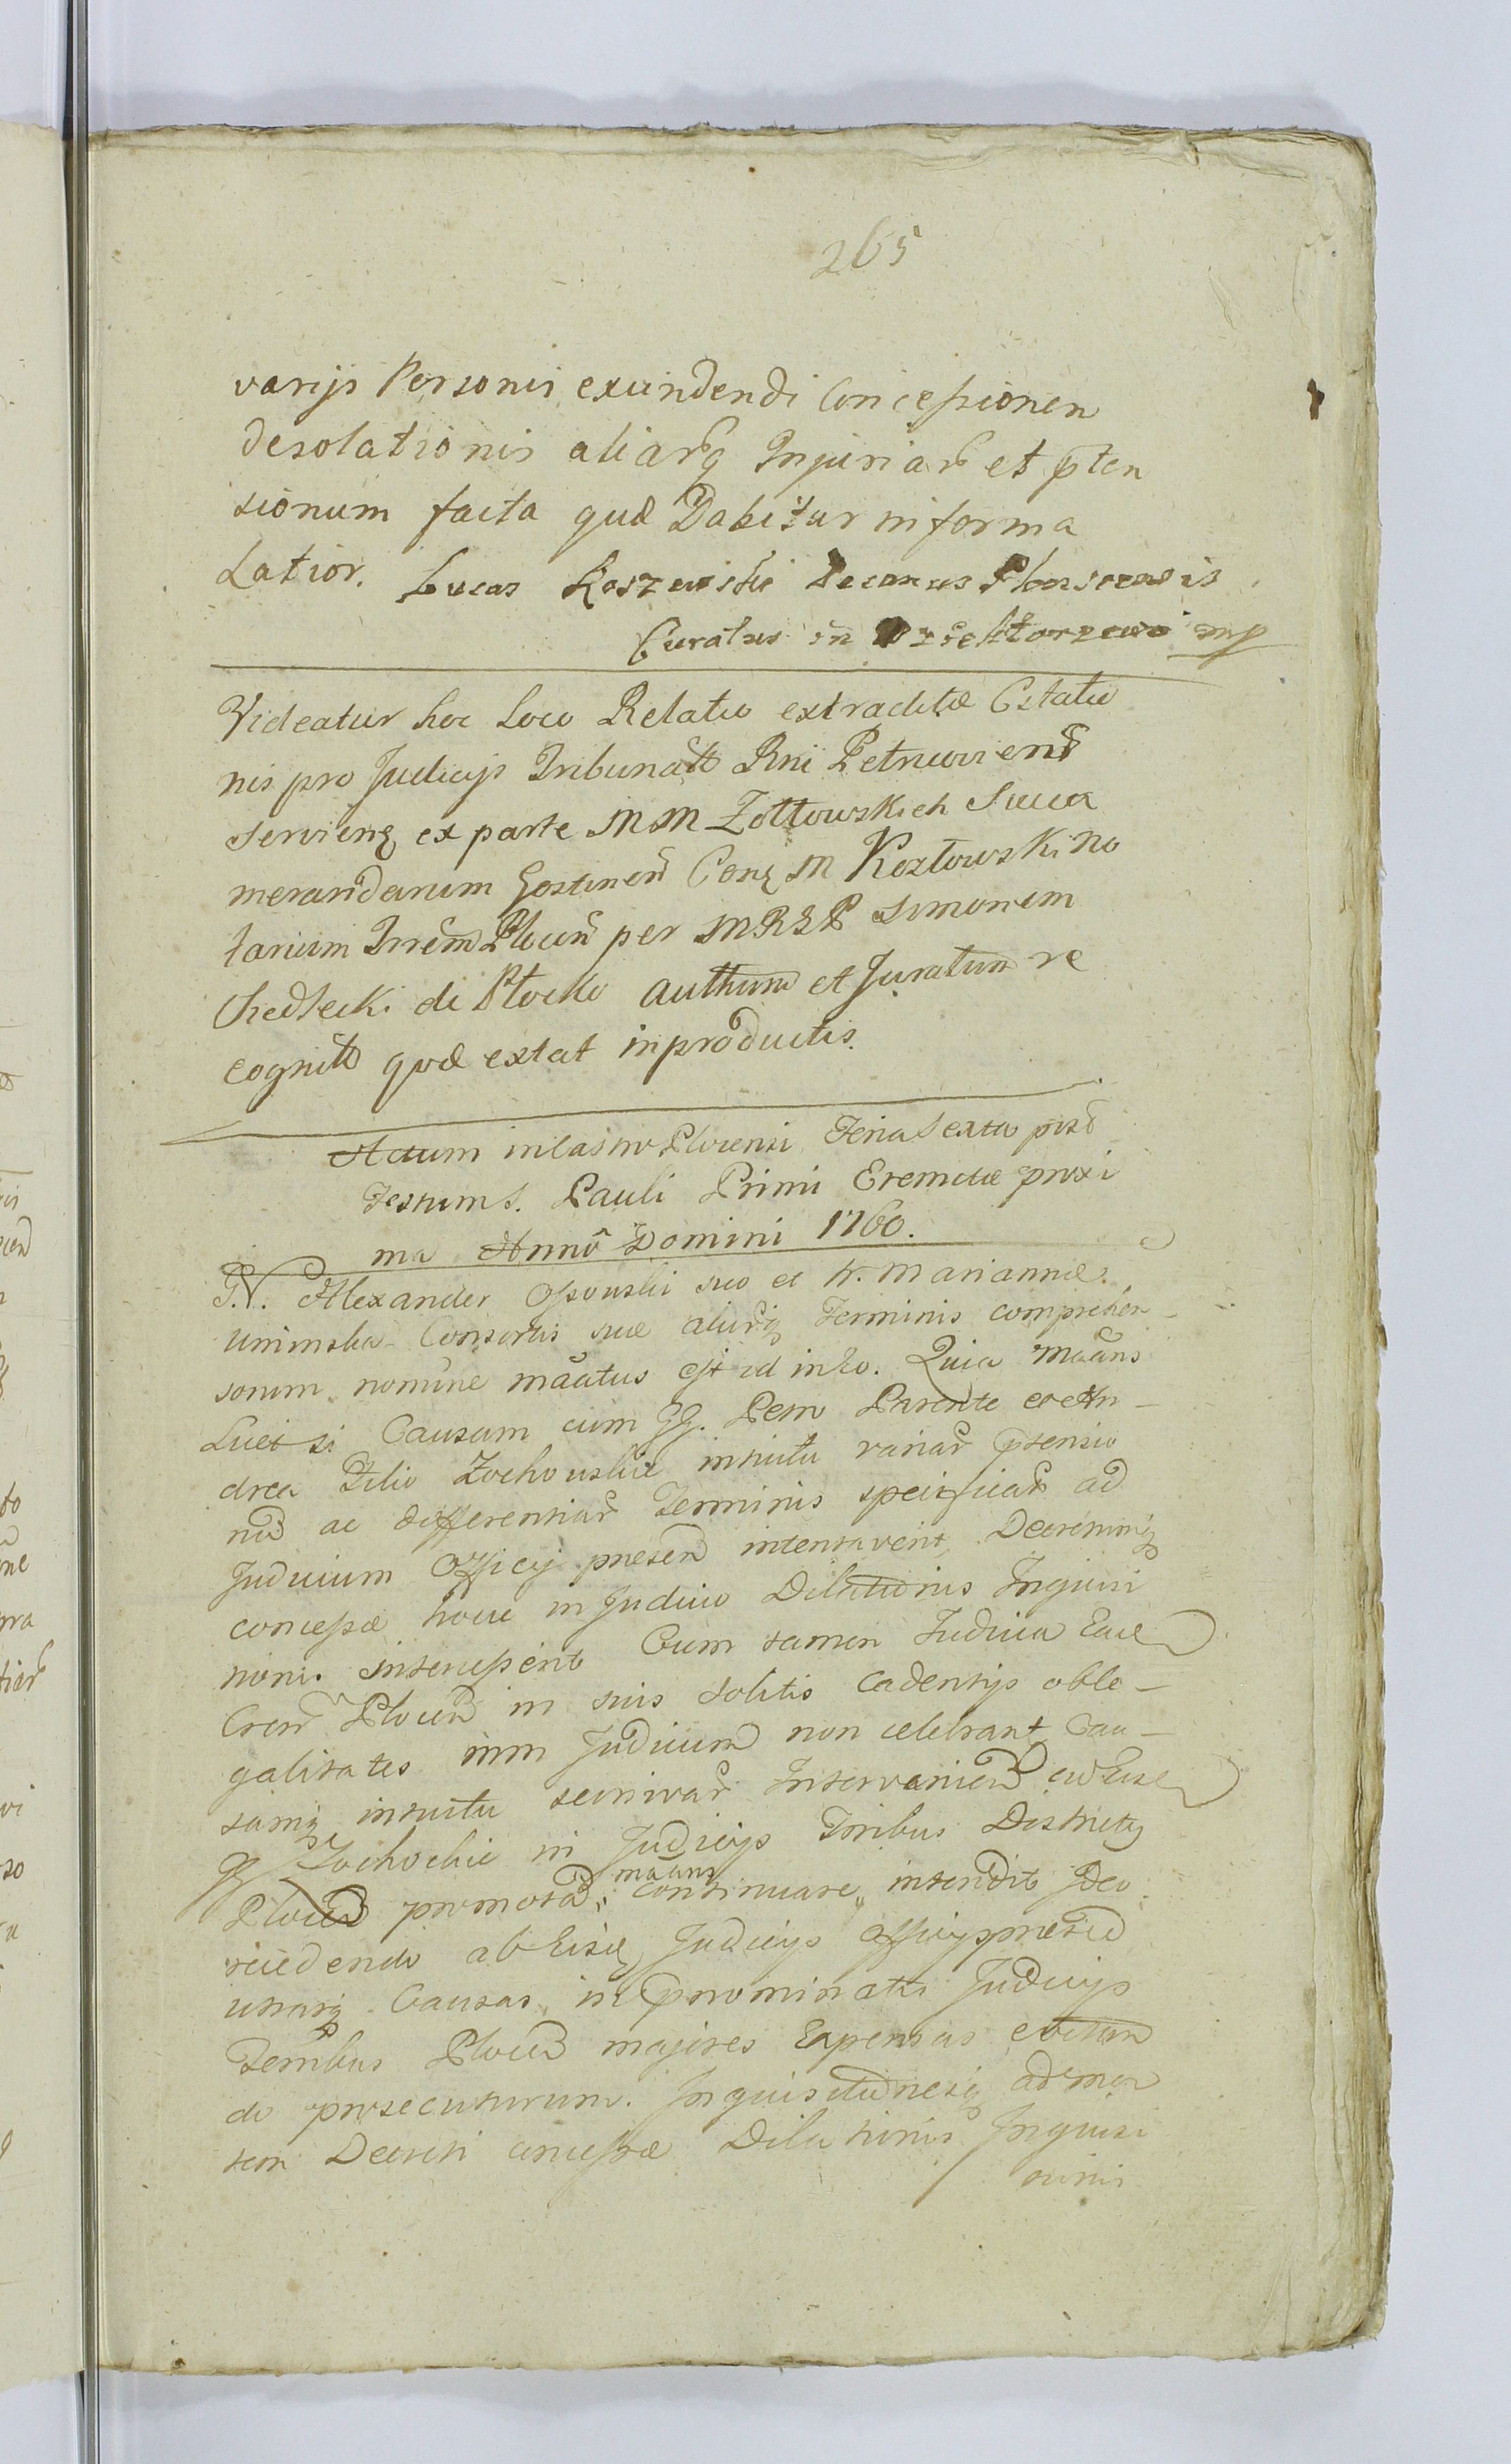 265
varijs Personis excindendi Concessionen
desolationis aliarq Injuriar et pten
sionum facta quæ Dabitur in forma
Latior. Lucas Koszewski Decanus Plonscensis
Curatus in Dziektarzewo mp
Videatur hoc Loco Relatio extraditæ Citatio
nis pro Judicijs Tribunalt Rni Petricovienš
servienę ex parte MM Zołtowskich Succa
merandarum Gostinen Conę M Kozłowski No
tarium Trrem Plocen per MRSP Simonem
Chedsecki di Płocko authum et Juratum re
cognit quæ extat in productis.
Actum in Castro Plocensi Feria Sexta post
Festum S. Pauli Primi Eremitæ proxi
ma Anno Domini 1760.
J.N. Alexander Ossowski suo et N. Mariannæ
Uninska Consortis suæ aliorq Terminis comprehen-
sorum nomine mãtus est id in eo. Quia mãns
Licet si Causam cum GG. Petro Parente et An-
drea Filio Zochowskie intuitu variar ptensio
nũ ac differentiar Terminis specificar ad
Judicium Officij presen intentaverit, Decretiniq
concessæ hocce in Judicio Dilationis Inquisi
tionis intercesserit Cum tamen Judicia Eadẽ
Cren Plocen in suis solitis cadentijs oble-
galitates inm Judicium non celebrant, Cau-
samq intuitu Intervenien ad Eosdẽ
GG Zochockie in Judicijs Trribus Districtq
Plocen promotã, mãns continuare, intendit Ideo
recedendo ab Eisdę Judicijs Officij presen
utrasq Causas, in prominatis Judicijs
Terribus Plocen majores Expensas evitan
do prosecuturum. Inquisitionesq ad men
tem Decreti concessæ Dilationis Inquisi
tionis